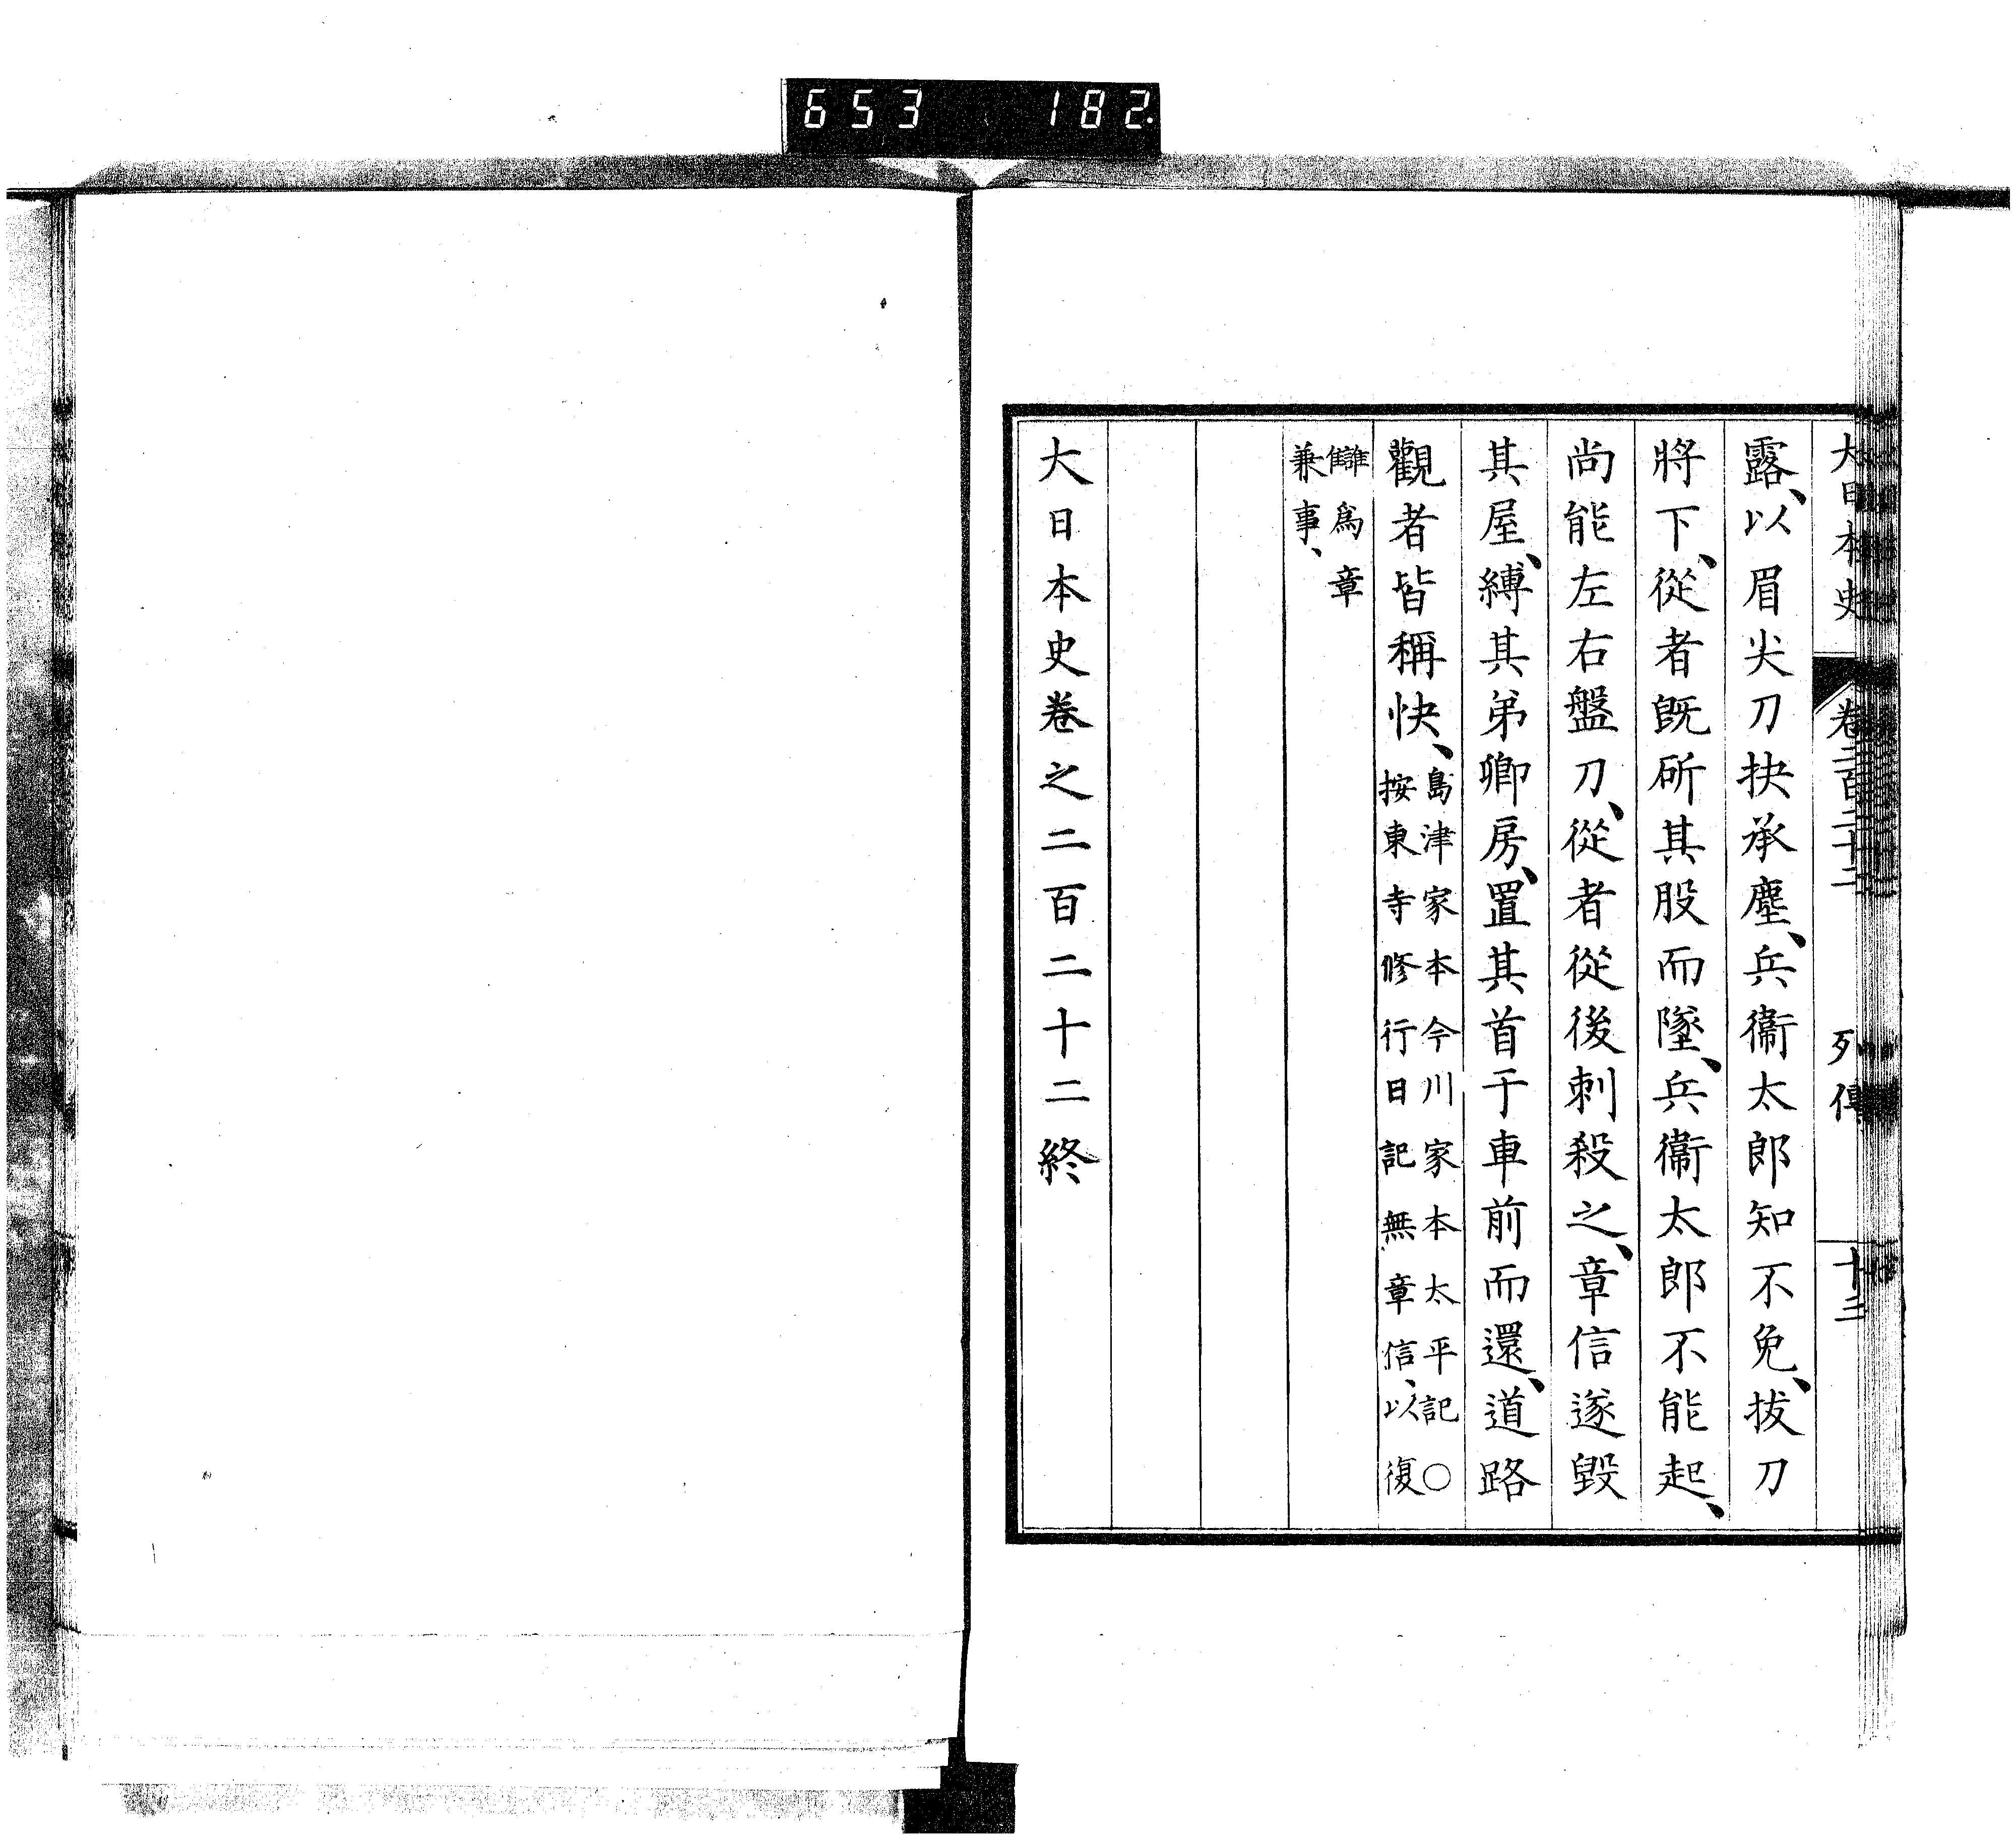 653 182
大日本史 卷二百二十二 列傳 十二
露、以眉尖刀抉承塵、兵衞太郎知不免、拔刀
將下、從者既斫其股而墜、兵衞太郎不能起、
尚能左右盤刀、從者從後刺殺之、章信遂毀
其屋、縛其弟卿房、置其首于車前而還、道路
觀者皆稱快、島津家本今川家本太平記○
按東寺修行日記無章信、以復
讎爲章
兼事、
大日本史卷之二百二十二終